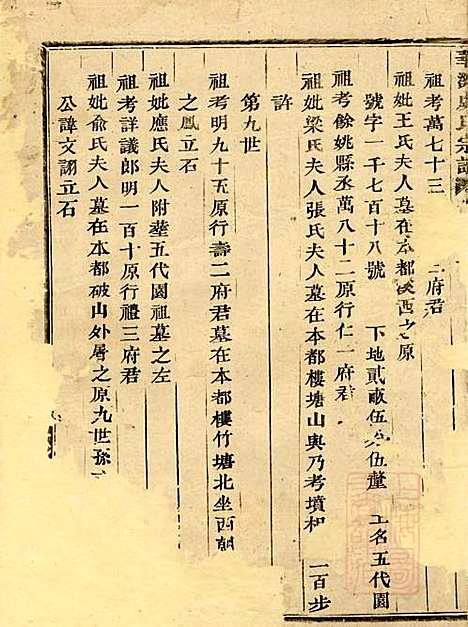 氏宗譜
祖考萬七十三 二府君
祖妣王氏夫人墓在本都 西之原
號字一千七百十八號 下地貳畝伍 伍釐 土名五代園
祖考餘姚縣丞萬八十二原行仁一府君
祖妣梁氏夫人張氏夫人墓在本都樓塘山與乃考墳相 一百步
許
第九世
祖考明九十五原行壽二府君墓在本都樓竹塘北坐西朝
之鳳立石
祖妣應氏夫人附葬五代園祖墓之左
祖考詳議郎明一百十原行禮三府君
祖妣俞氏夫人墓在本都破山外層之原九世孫
公諱文詡立石